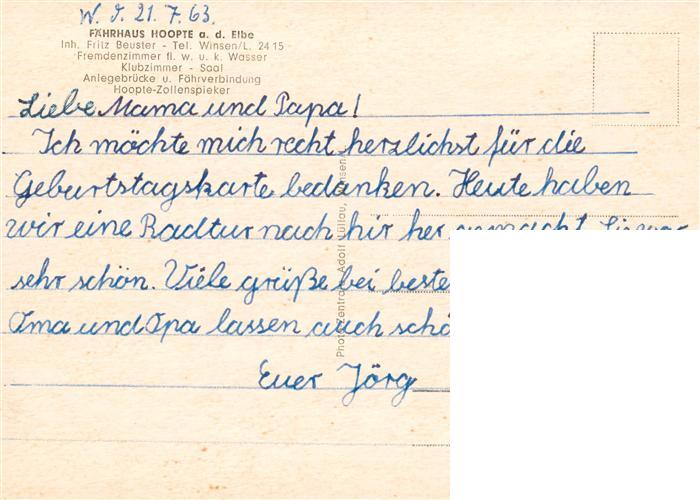 W. d. 21. 7. 63.
FÄHRHAUS HOOPTE a. d. Elbe
Inh. Fritz Beuster - Tel. Winsen/L. 2415
Fremdenzimmer fl. w. u. k. Wasser
Klubzimmer - Saal
Anlegebrücke u. Fährverbindung
Hoopte-Zollenspieker
Liebe Mama und Papa!
Ich möchte mich recht herzlichst für die
Geburtstagskarte bedanken. Heute haben
wir eine Radtur nach hir her gemacht. Sie war
sehr schön. Viele grüße bei beste
Oma und Opa lassen auch schö
Euer Jörg